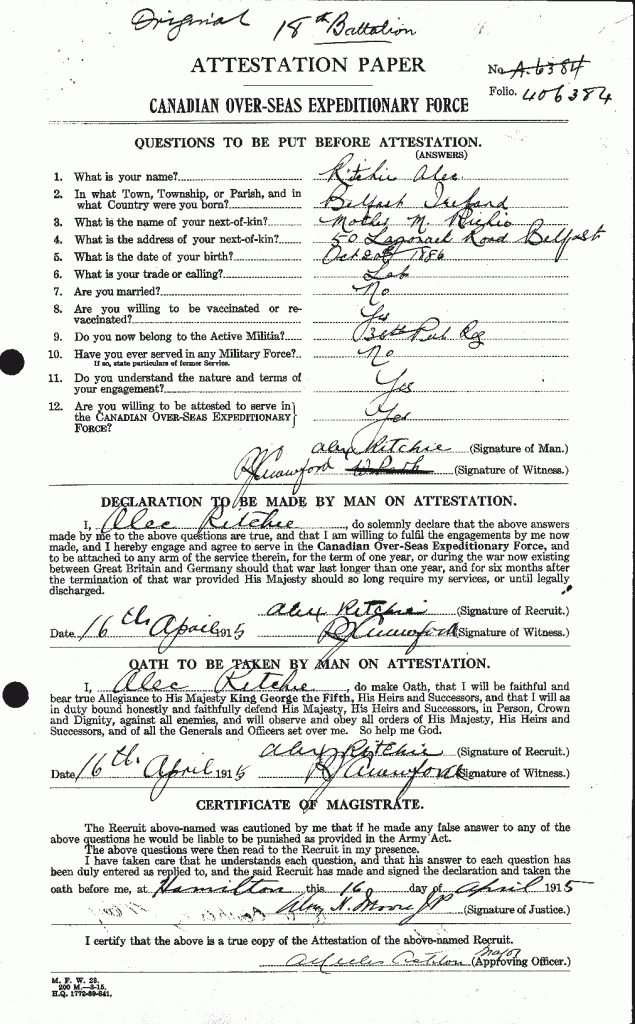 Original 18th Battalion
ATTESTATION PAPER
No. A.6384
Folio. 406384
CANADIAN OVER-SEAS EXPEDITIONARY FORCE
QUESTIONS TO BE PUT BEFORE ATTESTATION.
(ANSWERS)
1. What is your name? Ritchie Alec
2. In what Town, Township, or Parish, and in
what Country were you born? Belfast Ireland
3. What is the name of your next-of-kin? Mother M. Richie
4. What is the address of your next-of-kin? 50 Road Belfast
5. What is the date of your birth? Oct 20th 1886
6. What is your trade or calling? Lab
7. Are you married? No
8. Are you willing to be vaccinated or re-
vaccinated? Yes
9. Do you now belong to the Active Militia? 36th Peel Reg
10. Have you ever served in any Military Force? No
If so, state particulars of former Service.
11. Do you understand the nature and terms of
your engagement? Yes
12. Are you willing to be attested to serve in
the CANADIAN OVER-SEAS EXPEDITIONARY
FORCE? Yes
Alex Ritchie (Signature of Man.)
R J Crawford (Signature of Witness.)
DECLARATION TO BE MADE BY MAN ON ATTESTATION.
I, Alec Ritchie, do solemnly declare that the above answers
made by me to the above questions are true, and that I am willing to fulfil the engagements by me now
made, and I hereby engage and agree to serve in the Canadian Over-Seas Expeditionary Force, and
to be attached to any arm of the service therein, for the term of one year, or during the war now existing
between Great Britain and Germany should that war last longer than one year, and for six months after
the termination of that war provided His Majesty should so long require my services, or until legally
discharged.
Alex Ritchie (Signature of Recruit.)
Date 16th April 1915 R J Crawford (Signature of Witness.)
OATH TO BE TAKEN BY MAN ON ATTESTATION.
I, Alec Ritchie, do make Oath, that I will be faithful and
bear true Allegiance to His Majesty King George the Fifth, His Heirs and Successors, and that I will as
in duty bound honestly and faithfully defend His Majesty, His Heirs and Successors, in Person, Crown
and Dignity, against all enemies, and will observe and obey all orders of His Majesty, His Heirs and
Successors, and of all the Generals and Officers set over me. So help me God.
Alex Ritchie (Signature of Recruit.)
Date 16th April 1915 R J Crawford (Signature of Witness.)
CERTIFICATE OF MAGISTRATE.
The Recruit above-named was cautioned by me that if he made any false answer to any of the
above questions he would be liable to be punished as provided in the Army Act.
The above questions were then read to the Recruit in my presence.
I have taken care that he understands each question, and that his answer to each question has
been duly entered as replied to, and the said Recruit has made and signed the declaration and taken the
oath before me, at Hamilton this 16 day of April 1915
N. Moore JP (Signature of Justice.)
I certify that the above is a true copy of the Attestation of the above-named Recruit.
Major (Approving Officer.)
M. F. W. 23.
200 M.-3-15.
H.Q. 1772-39-841.